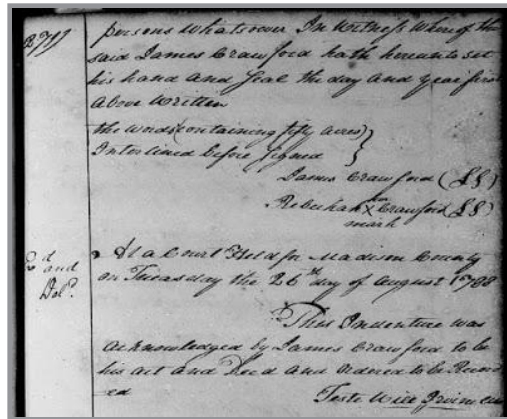 persons whatsoever In Witness Whereof the
said James Crawford hath hereunto set
his hand and Seal the day and year first
above written
the words (containing fifty acres)
Interlined before Signed
James Crawford (LS)
Rebeckah X Crawford (LS)
mark
At a Court Held for Madison County
on Tuesday the 26th day of August 1788
This Indenture was
acknowledged by James Crawford to be
his act and Deed and ordered to be Record
ed
Teste Will Irvine
and
Del.d